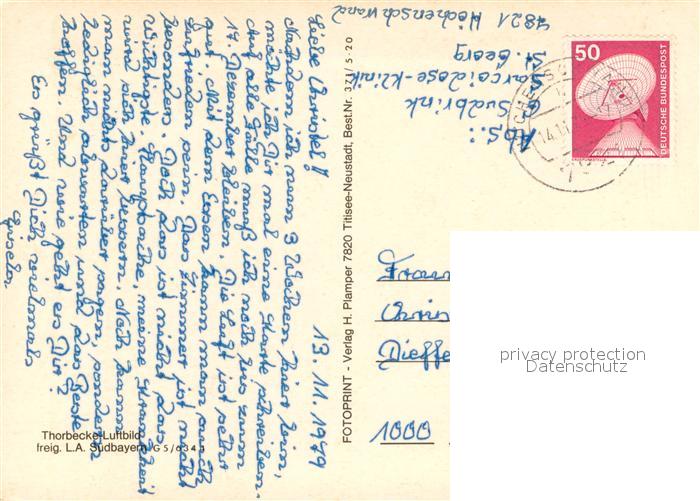 13.11.1979
Liebe Christel!
Nachdem ich nun 3 Wochen hier bin,
möchte ich Dir mal eine Karte schreiben.
Auf alle Fälle muß ich noch bis zum
17. Dezember bleiben. Die Luft ist sehr
gut. Mit dem Essen kann man auch
zufrieden sein. Das Zimmer ist nicht
besonders. Doch das ist nicht das
Wichtigste. Hauptsache, meine Krankheit
wird sich hier bessern. Noch kann
man nichts darüber sagen, sondern
lediglich abwarten und das Beste
hoffen. Und wie geht es Dir?
Es grüßt Dich vielmals
Gisela
Abs.:
Sudbrink
Sarcoidose-Klinik
St. Georg
7821 Höchenschwand
50
DEUTSCHE BUNDESPOST
FOTOPRINT - Verlag H. Plamper 7820 Titisee-Neustadt, Best.Nr. 371/5-20
Frau
Chris
Dieffe
1000
privacy protection
Datenschutz
Thorbecke-Luftbild
freig. L.A. Südbayern G5/6343